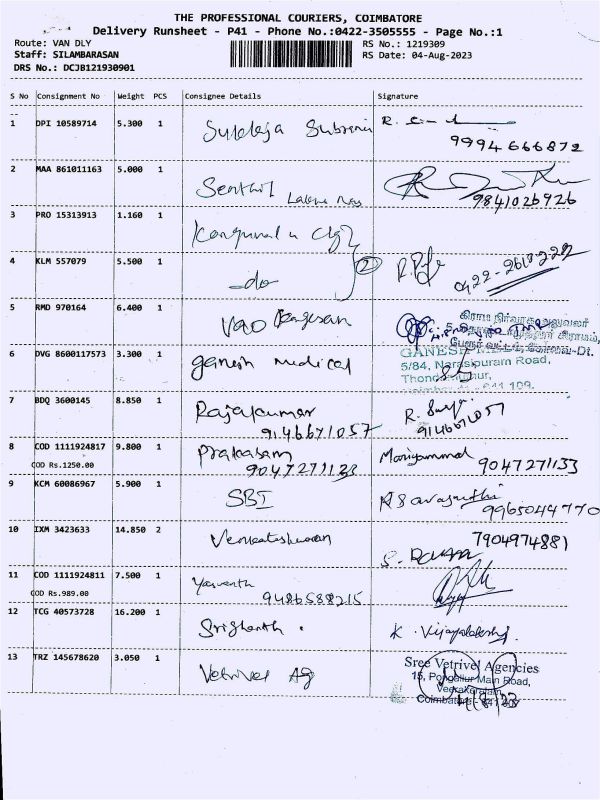 THE PROFESSIONAL COURIERS, COIMBATORE
Delivery Runsheet - P41 - Phone No.:0422-3505555 - Page No.:1
Route: VAN DLY RS No.: 1219309
Staff: SILAMBARASAN RS Date: 04-Aug-2023
DRS No.: DCJB121930901
S No Consignment No Weight PCS Consignee Details Signature
1 DPI 10589714 5.300 1
9994666872
2 MAA 861011163 5.000 1 Senthil
9841026926
3 PRO 15313913 1.160 1
4 KLM 557079 5.500 1 -do- 2
5 RMD 970164 6.400 1 VAO
கிராம நிர்வாக அலுவலர்
6 DVG 8600117573 3.300 1 ganesh medical
5/84, Narasipuram Road,
7 BDQ 3600145 8.850 1 Rajakumar
9146671057 9146671057
8 COD 1111924817 9.800 1 Prakasam Mariyammal
COD Rs.1250.00 9047271133 9047271133
9 KCM 60086967 5.900 1 SBI
9965044770
10 IXM 3423633 14.850 2 Venkateshwaran 7904974881
11 COD 1111924811 7.500 1 Yasvanth
COD Rs.989.00 9486588215
12 TCG 40573728 16.200 1 Srikanth K. Vijayalakshmi
13 TRZ 145678620 3.050 1 Vetrivel Ag
Sree Vetrivel Agencies
15, Pongaliur Main Road,